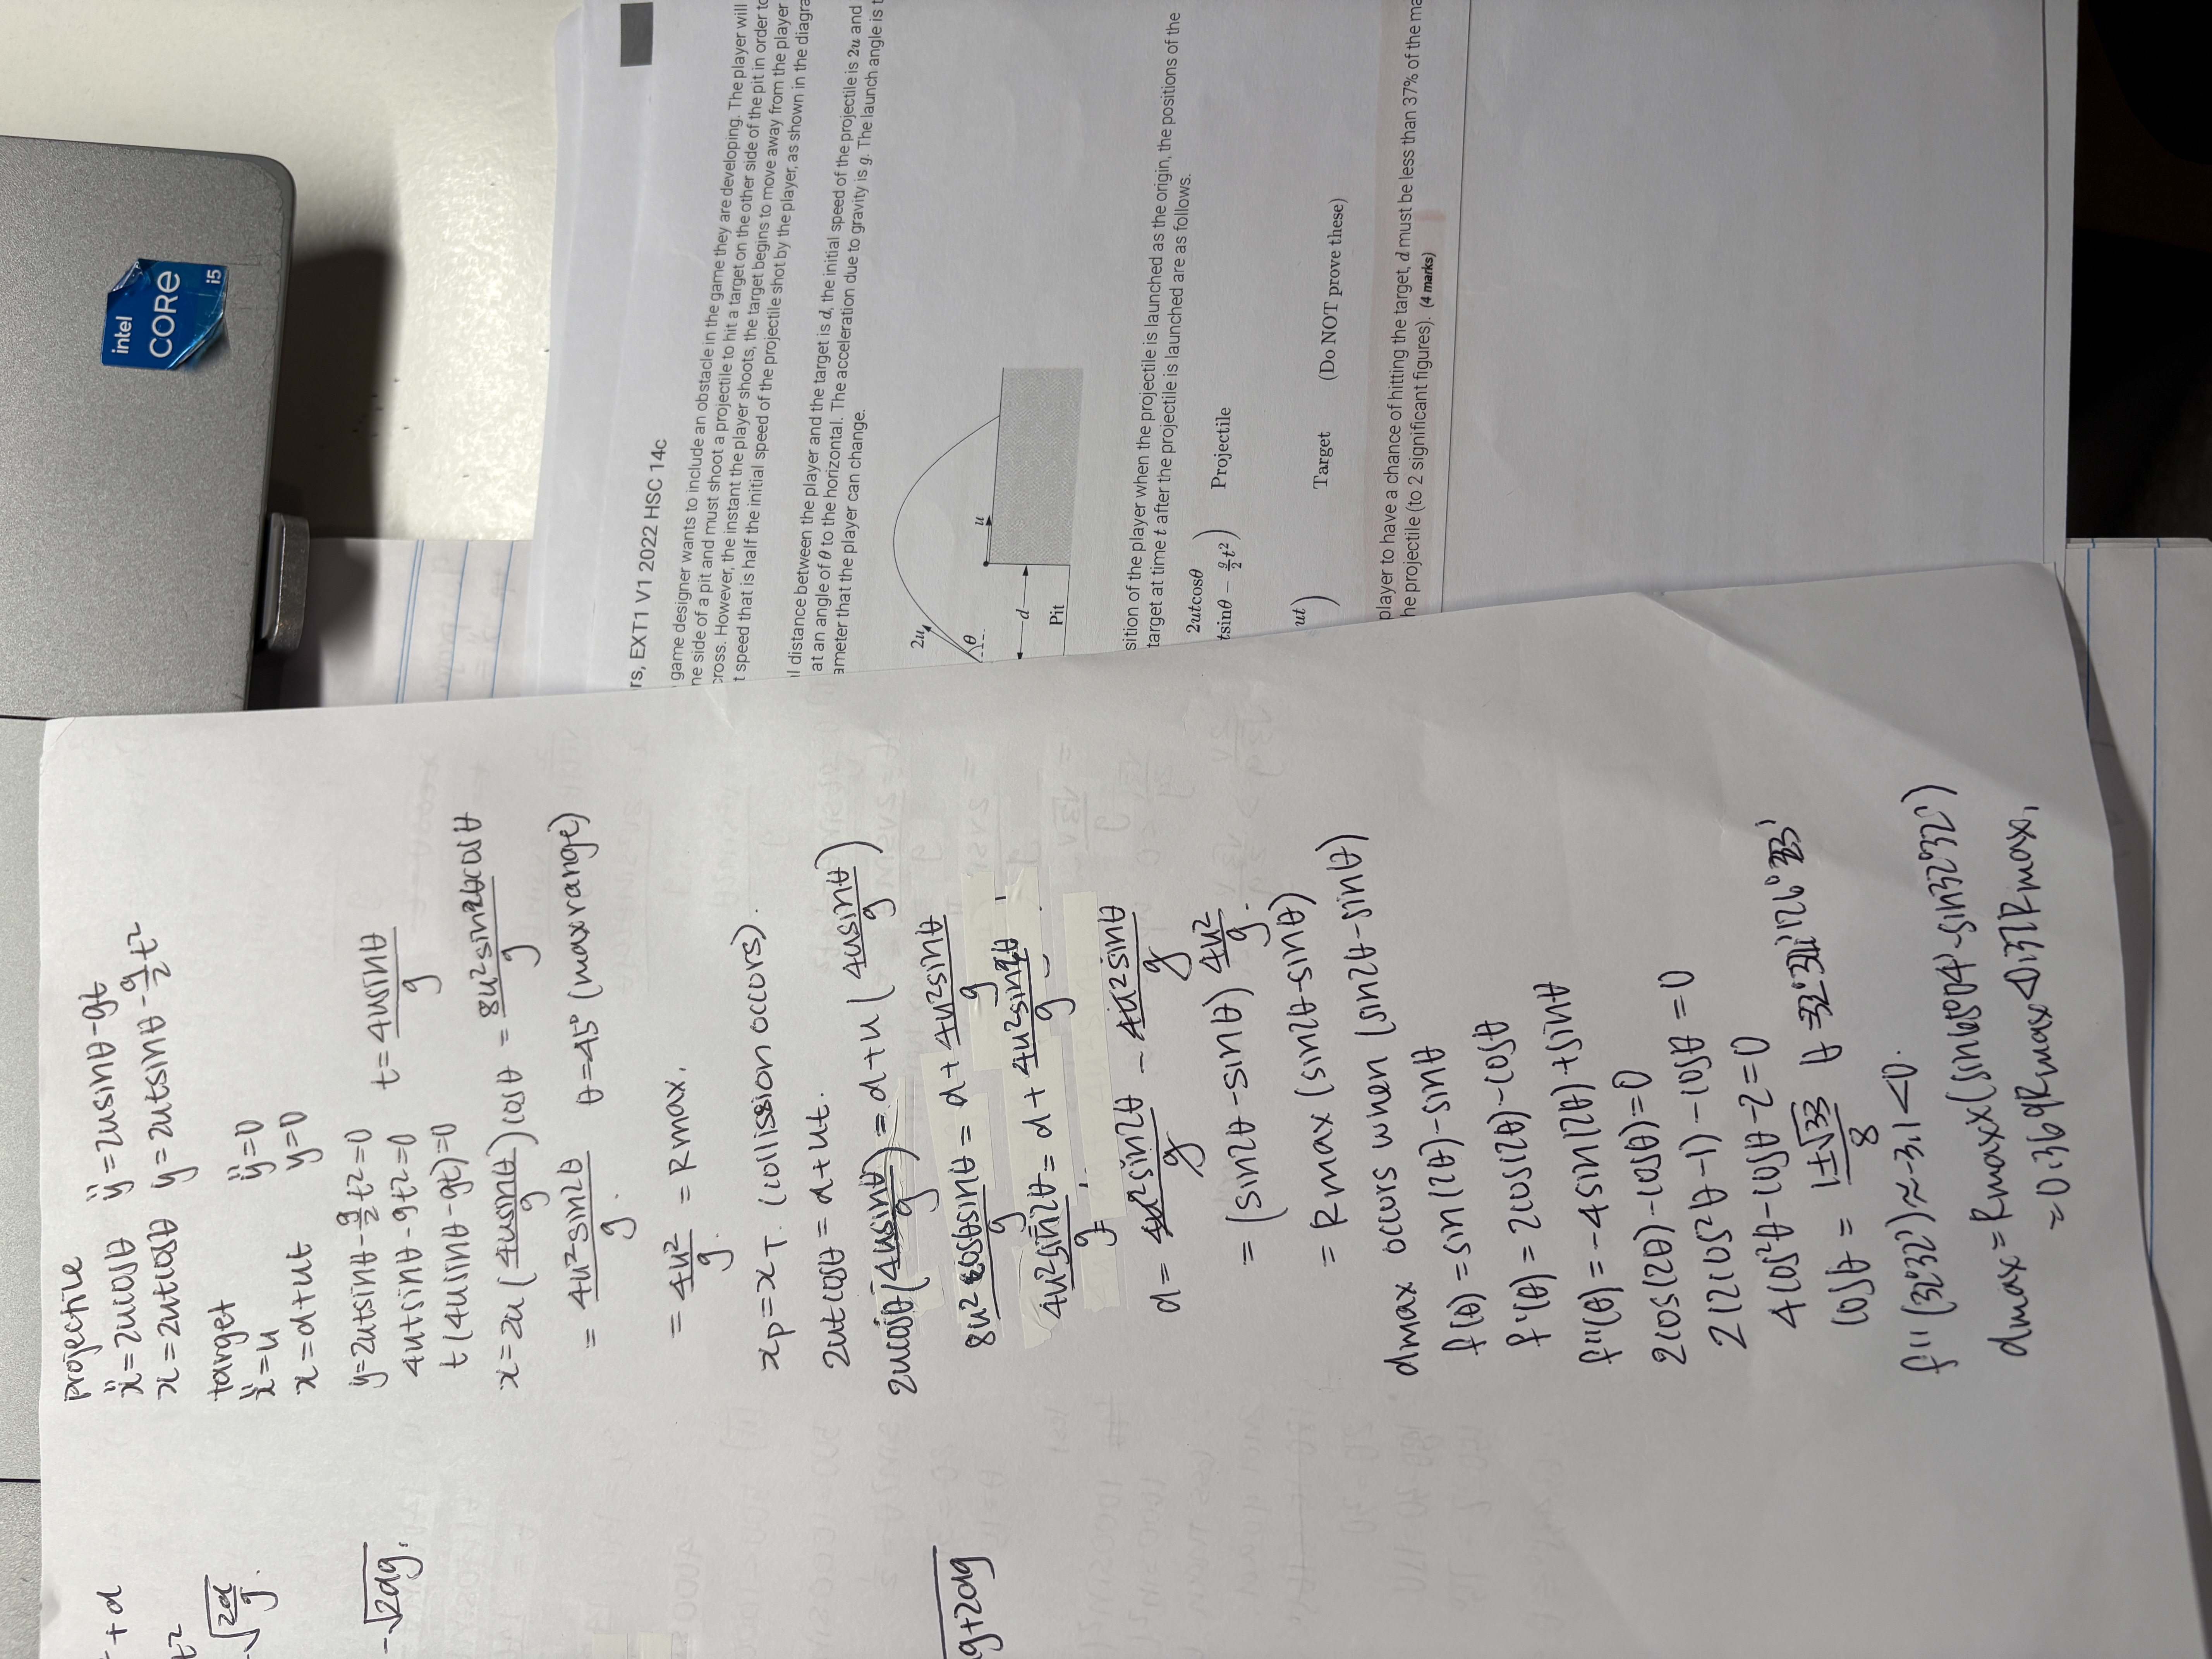 intel
CORE
i5
rs, EXT1 V1 2022 HSC 14c
game designer wants to include an obstacle in the game they are developing. The player will
ne side of a pit and must shoot a projectile to hit a target on the other side of the pit in order to
cross. However, the instant the player shoots, the target begins to move away from the player
t speed that is half the initial speed of the projectile shot by the player, as shown in the diagra
l distance between the player and the target is d, the initial speed of the projectile is 2u and
at an angle of θ to the horizontal. The acceleration due to gravity is g. The launch angle is t
ameter that the player can change.
2u
θ
u
d
Pit
sition of the player when the projectile is launched as the origin, the positions of the
target at time t after the projectile is launched are as follows.
2utcosθ
tsinθ − g/2 t²) Projectile
ut) Target (Do NOT prove these)
player to have a chance of hitting the target, d must be less than 37% of the ma
he projectile (to 2 significant figures). (4 marks)
+d
t²
√(2d/g).
-√2dg.
g+2dg
projectile
ẋ=2ucosθ ẏ=2usinθ-gt
x=2utcosθ y=2utsinθ-g/2 t²
target
ẍ=u ÿ=0
x=d+ut y=0
y=2utsinθ-g/2 t²=0
4utsinθ-gt²=0
t(4usinθ-gt)=0 t=4usinθ/g
x=2u(4usinθ/g)cosθ = 8u²sinθcosθ/g
=4u²sin2θ/g. θ=45° (max range)
=4u²/g. =Rmax.
xp=xT (collission occurs).
2utcosθ=d+ut.
2ucosθ(4usinθ/g)=d+u(4usinθ/g)
8u²cosθsinθ/g=d+4u²sinθ/g
4u²sin2θ/g=d+4u²sinθ/g
d=4u²sin2θ/g-4u²sinθ/g
=(sin2θ-sinθ)4u²/g.
=Rmax(sin2θ-sinθ)
dmax occurs when (sin2θ-sinθ)
f(θ)=sin(2θ)-sinθ
f'(θ)=2cos(2θ)-cosθ
f''(θ)=-4sin(2θ)+sinθ
2cos(2θ)-cosθ=0
2(2cos²θ-1)-cosθ=0
4cos²θ-cosθ-2=0
cosθ=1±√33/8 θ=32°
f''(32°32')≈-3.1<0.
dmax=Rmax×(sin65°04'-sin32°32')
=0.369Rmax<0.37Rmax.